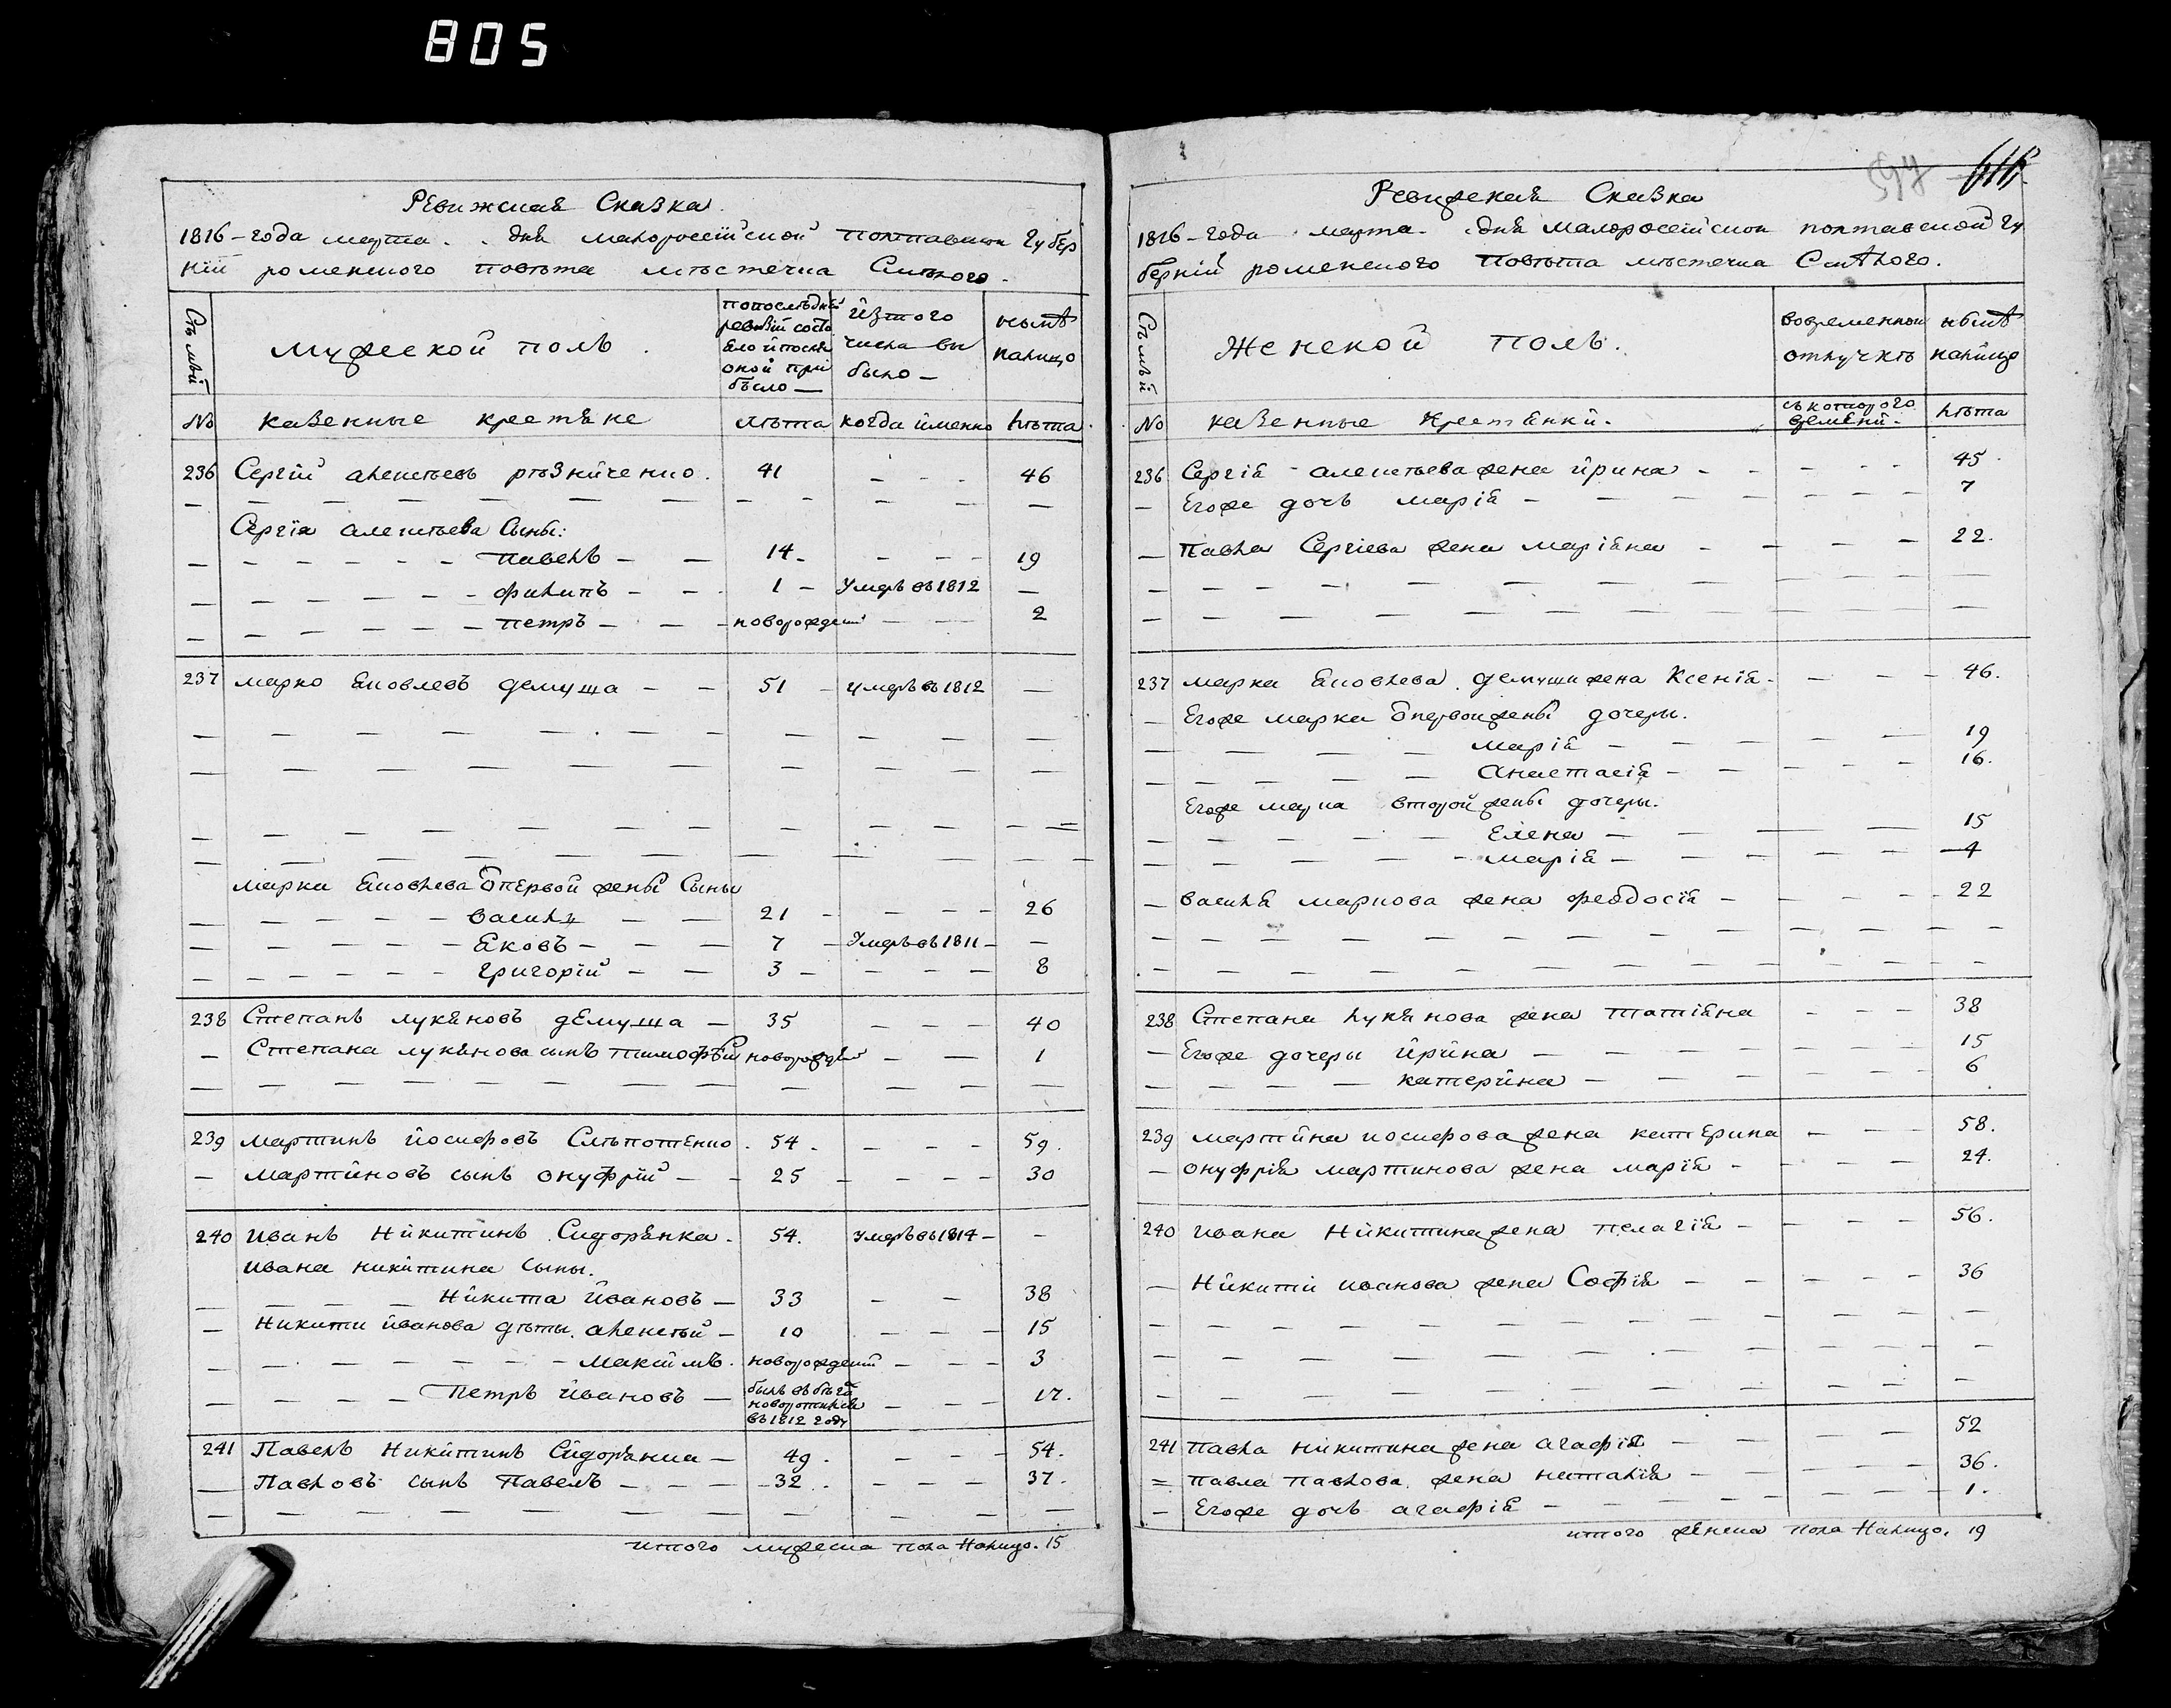 805
Ревижская Сказка
1816-года марта . . дня малоросейской полтавскои Губер
ний роменского повѣта мѣстечка Смѣлого.
Сѣмьй
мужеской полъ.
попослѣдней ревизій состояло й после оной при было —
йзтого числа вы было —
нынѣ налицо
№ казенные крестяне лѣта когда йменно лѣта
236 Сергій алексѣевъ рѣзниченко. 41 - - - 46
Сергія алексѣева Сыны:
павелъ — — 14 - - - - 19
филипъ - - 1 - Умеръ въ 1812 —
петръ — — новорожден — — 2
237 марко яковлевъ демуша — — 51 - умеръ въ 1812 —
марка яковлева ѿпервой жены Сыны
василь — — 21 - - - - 26
яковъ — — 7 - Умеръ въ 1811 - —
григорій — — 3 - - - - 8
238 Степанъ лукяновъ демуша — 35 - - - 40
— Степана лукянова сынъ тимофѣй новорожден — — 1
239 мартинъ йосифовъ Слѣпотенко. 54 - - - - 59.
— мартиновъ сынъ онуфрій — - 25 - - - - 30
240 Иванъ Никитинъ Сидорянка. 54. умеръ въ 1814 - -
Ивана никитина сыны.
Никита Ивановъ — 33 - — 38
— Никити йванова дѣты. алексѣй — 10 - - - 15
максимъ. новорожденій - - - 3
Петръ Ивановъ — былъ въ бѣгах новоротился въ 1812 году - - - 17.
241 Павелъ Никитинъ Сидорянка — 49. - - - 54.
— Павловъ сынъ Павелъ - - - 32. - - - 37.
итого мужеска пола Налицо. 15
597 616.
Ревижская Сказка
1816-года марта. дня малоросейскои полтавской Гу
берній роменского повѣта мѣстечка Смѣлого.
Сѣмьй
Женской полъ.
вовременнои отлучкѣ
нынѣ налицо
№ казенные крестянки. съ которого времени. лѣта
236 Сергія алексѣева жена йрина - - - - - 45
— Егоже дочь марія - 7
— Павла Сергіева жена маріяна - - - - 22.
237 марка яковлева демуши жена Ксенія - - - - 46.
— Егоже марка ѿпервой жены дочеры.
марія - 19
Анастасія - 16.
Егоже марка второй жены дочеры.
Елена — 15
марія — 4
— василя маркова жена феодосія - - - - 22
238 Степана лукянова жена татіяна - - - 38
— Егоже дочеры йрина — 15
катерина — 6
239 мартина иосифова жена катерина - - - 58.
— онуфрія мартинова жена марія - - - - 24.
240 Ивана Никитина жена пелагія - - - - 56.
— Никити иванова жена Софія - - - - 36
241 Павла никитина жена агафія 52
= павла павлова жена наталія 36.
— Егоже дочь агафія - 1.
итого женска пола Налицо. 19